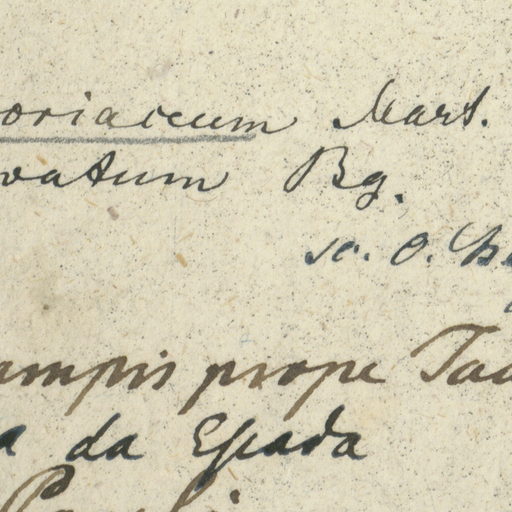 oriaceum Mart.
ovatum Bg.
sc. O.
ampis prope Tau
a da Espada